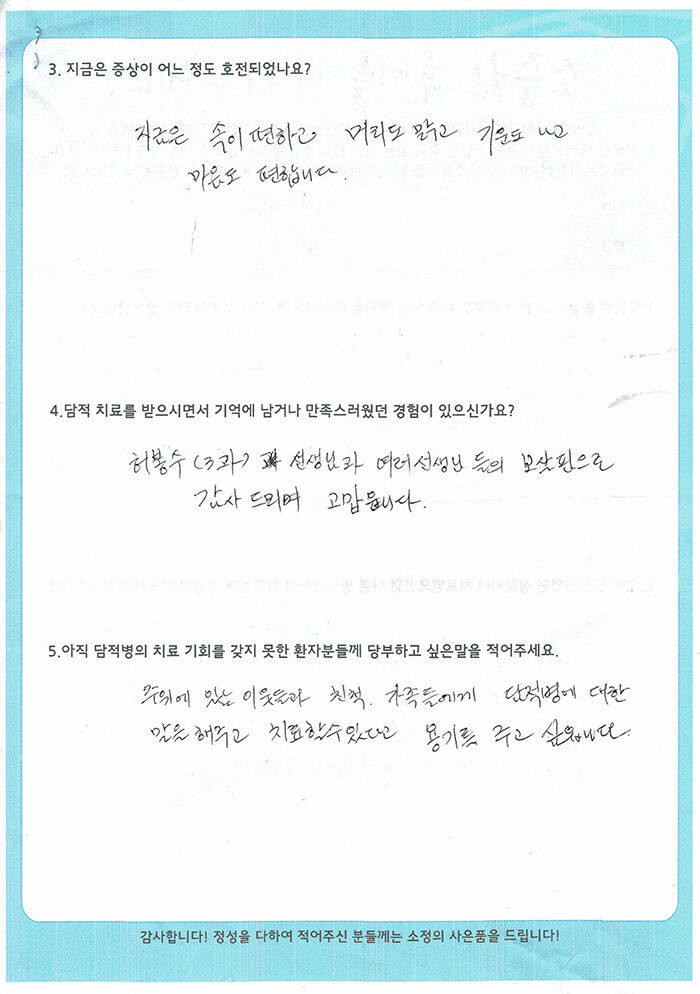 3. 지금은 증상이 어느 정도 호전되었나요?
지금은 속이 편하고 머리도 맑고 기운도 나고
마음도 편합니다.
4.담적 치료를 받으시면서 기억에 남거나 만족스러웠던 경험이 있으신가요?
허봉수 (3과) 선생님과 여러선생님 들의 보살핌으로
감사 드리며 고맙습니다.
5.아직 담적병의 치료 기회를 갖지 못한 환자분들께 당부하고 싶은말을 적어주세요.
주위에 있는 이웃들과 친척. 가족들에게 담적병에 대한
말을 해주고 치료할수있다고 용기를 주고 싶습니다.
감사합니다! 정성을 다하여 적어주신 분들께는 소정의 사은품을 드립니다!